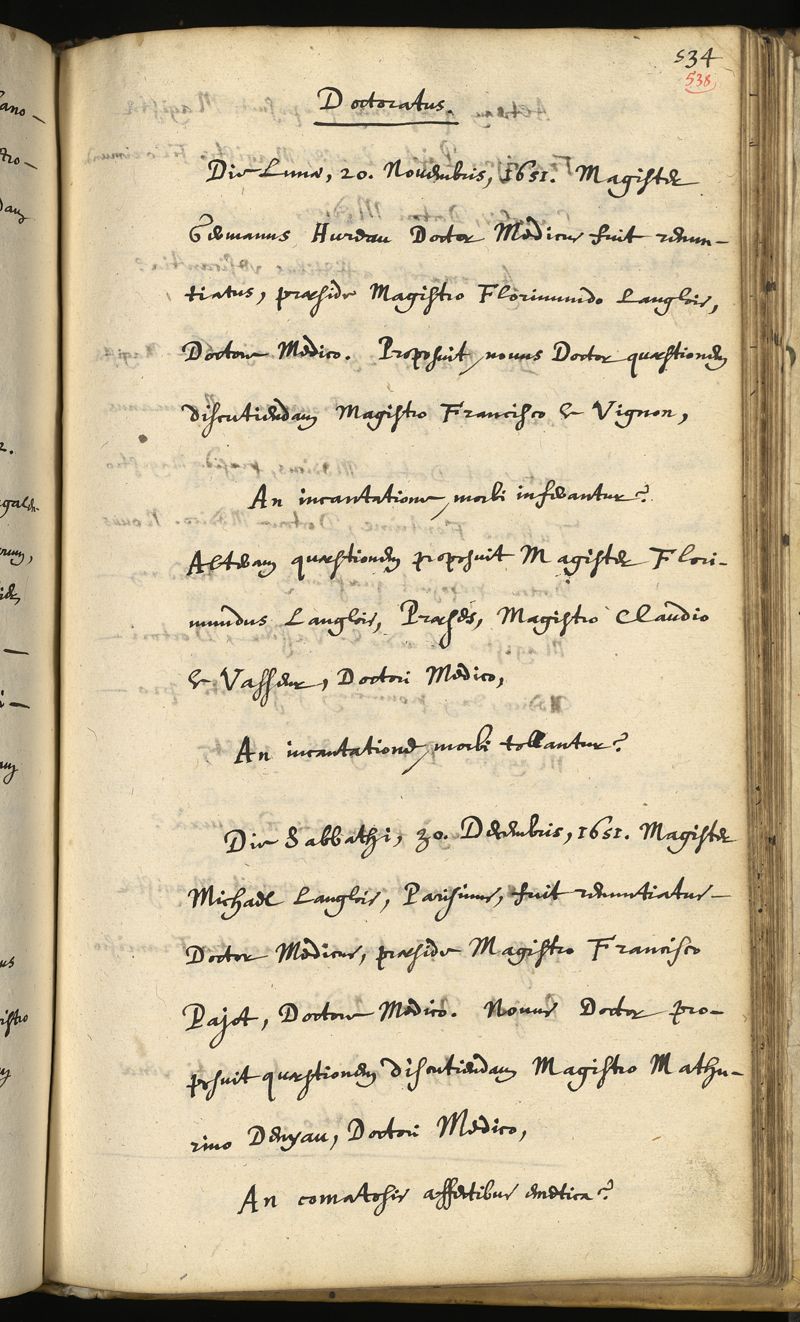 534
538
Doctoratus.
Die Lunæ, 20. Nouembris, 1651. Magister
Germanus Hureau Doctor Medicus fuit renun-
tiatus, præside Magistro Florimundo Langlois,
Doctore Medico. Proposuit nouus Doctor quæstionem
discutiendam Magistro Francisco le Vignon,
An incantatione morbi inferantur?
Alteram quæstionem proposuit Magister Flori-
mundus Langlois, Præses, Magistro Claudio
le Vasseur, Doctori Medico,
An incantatione morbi tollantur?
Die Sabbathi, 30. Decembris, 1651. Magister
Michael Langlois, Parisinus, fuit renuntiatus
Doctor Medicus, præside Magistro Francisco
Pajot, Doctore Medico. Nouus Doctor pro-
posuit quæstionem discutiendam Magistro Mathu-
rino Denyau, Doctori Medico,
An comatosis affectibus emetica?